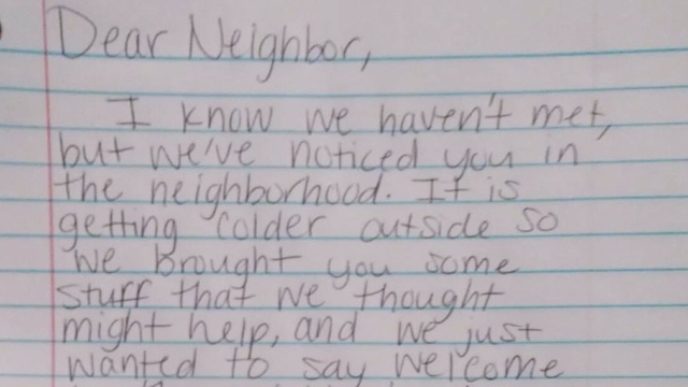 Dear Neighbor,
I know we haven't met,
but we've noticed you in
the neighborhood. It is
getting colder outside so
we brought you some
stuff that we thought
might help, and we just
wanted to say welcome